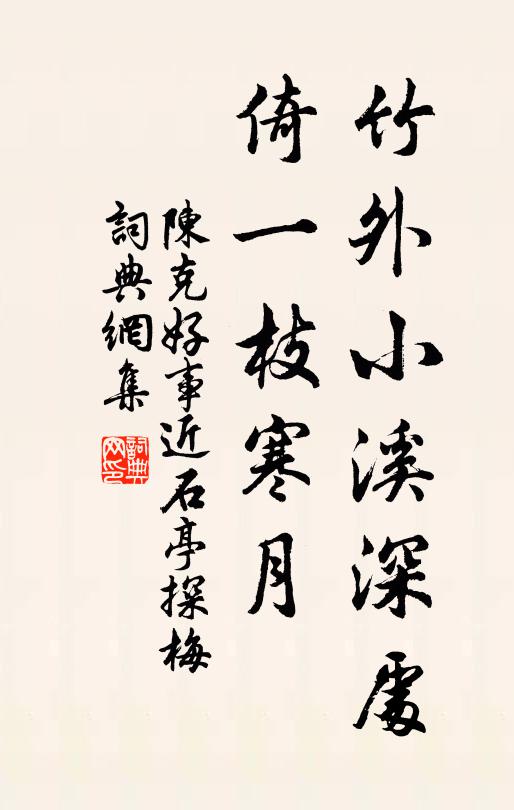 竹外小溪深處
倚一枝寒月
陳克好事近石亭探梅
詞典網集
詞典網印